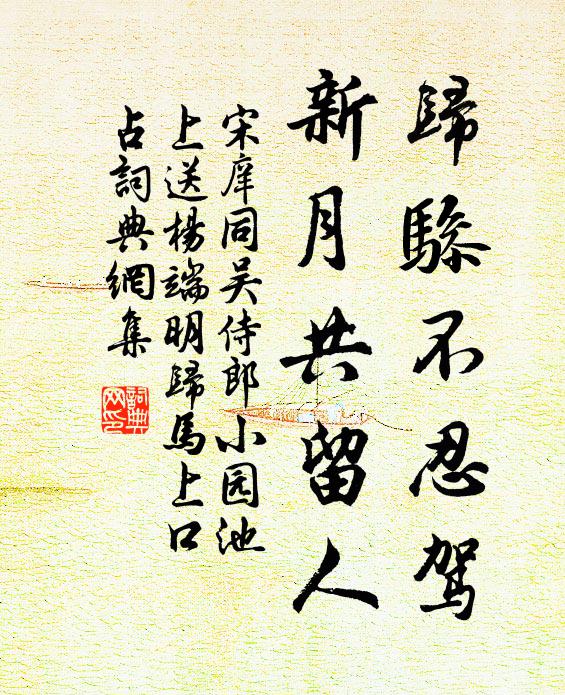 歸驂不忍駕
新月共留人
宋庠同吴侍郎小园池
上送楊端明歸馬上口
占詞典網集
詞典
网印